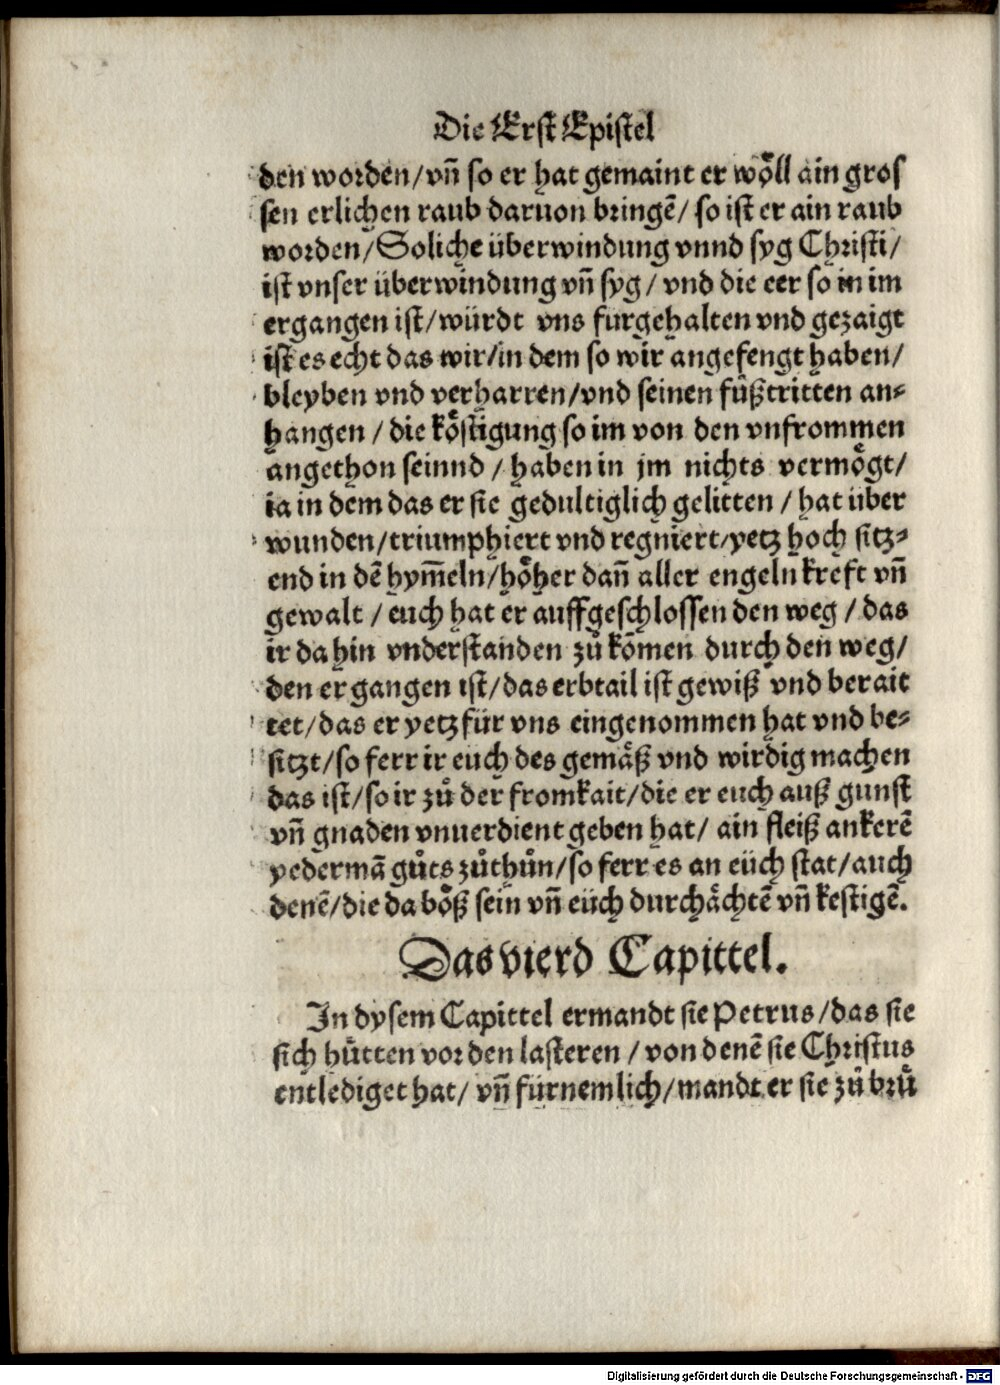 Die Erst Epistel
den worden/vn̄ so er hat gemaint er woͤll ain gros
sen erlichen raub daruon bringē/ so ist er ain raub
worden/Soliche überwindung vnnd syg Christi/
ist vnser überwindung vn̄ syg/ vnd die eer so in im
ergangen ist/würdt vns furgehalten vnd gezaigt
ist es echt das wir/in dem so wir angefengt haben/
bleyben vnd verharren/vnd seinen fuͤßtritten an-
hangen/ die koͤstigung so im von den vnfrommen
angethon seinnd/ haben in jm nichts vermoͤgt/
ia in dem das er sie gedultiglich gelitten/ hat über
wunden/triumphiert vnd regniert/yetz hoch sitz-
end in dē hym̄eln/hoͤher dan̄ aller engeln kreft vn̄
gewalt/ euch hat er auffgeschlossen den weg/ das
ir da hin vnderstanden zuͦ kōmen durch den weg/
den er gangen ist/das erbtail ist gewiß vnd berait
tet/das er yetz für vns eingenommen hat vnd be-
sitzt/so ferr ir euch des gemaͤß vnd wirdig machen
das ist/so ir zuͦ der fromkait/die er euch auß gunst
vn̄ gnaden vnuerdient geben hat/ ain fleiß ankerē
yedermā guͦts zuͦthuͦn/so ferr es an eüch stat/auch
denē/die da boͤß sein vn̄ eüch durchaͤchtē vn̄ kestigē.
Das vierd Capittel.
In dysem Capittel ermandt sie Petrus/das sie
sich huͤtten vor den lasteren/ von denē sie Christus
entlediget hat/ vn̄ fürnemlich/mandt er sie zuͦ bruͦ
Digitalisierung gefördert durch die Deutsche Forschungsgemeinschaft - DFG